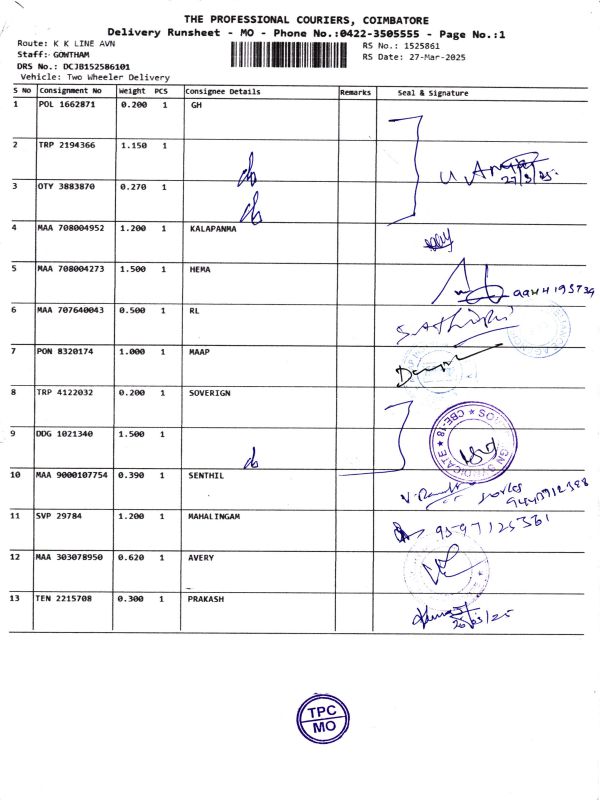 THE PROFESSIONAL COURIERS, COIMBATORE
Delivery Runsheet - MO - Phone No.:0422-3505555 - Page No.:1
Route: K K LINE AVN
RS No.: 1525861
Staff: GOWTHAM
RS Date: 27-Mar-2025
DRS No.: DCJB152586101
Vehicle: Two Wheeler Delivery
S No Consignment No Weight PCS Consignee Details Remarks Seal & Signature
1 POL 1662871 0.200 1 GH
2 TRP 2194366 1.150 1 do
27/3/25.
3 OTY 3883870 0.270 1 do
4 MAA 708004952 1.200 1 KALAPANMA
5 MAA 708004273 1.500 1 HEMA
6 MAA 707640043 0.500 1 RL
7 PON 8320174 1.000 1 MAAP
8 TRP 4122032 0.200 1 SOVERIGN
9 DDG 1021340 1.500 1 do
10 MAA 9000107754 0.390 1 SENTHIL
11 SVP 29784 1.200 1 MAHALINGAM
12 MAA 303078950 0.620 1 AVERY
13 TEN 2215708 0.300 1 PRAKASH
26/03/25
TPC
MO